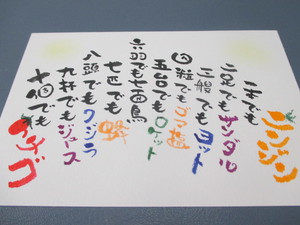 一本でも
ニンジン
二足でもサンダル
三船でもヨット
四粒でもゴマ塩
五台でもロケット
六羽でも七面鳥
七匹でも蜂
八頭でもクジラ
九杯でもジュース
十個でも
イチゴ